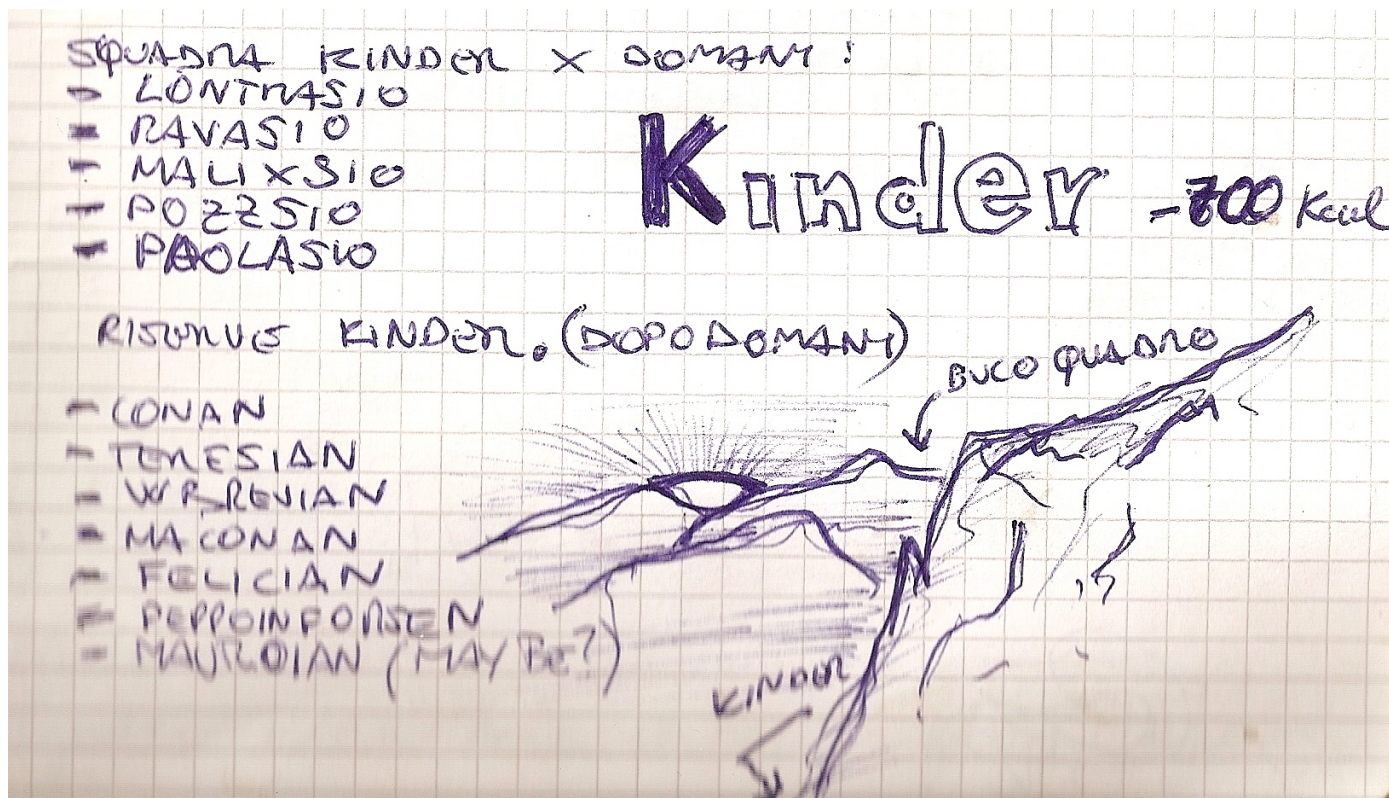 SQUADRA KINDER X DOMANI:
- LONTRASIO
- RAVASIO
- MALIXSIO
- POZZSIO
- PAOLASIO
Kinder -700 Kcal
RISERVE KINDER. (DOPODOMANI)
BUCO QUADRO
- CONAN
- TERESIAN
- MACONAN
- FELICIAN
- PEPPOINFORSEN
- MAUROIAN (MAY BE?)
KINDER